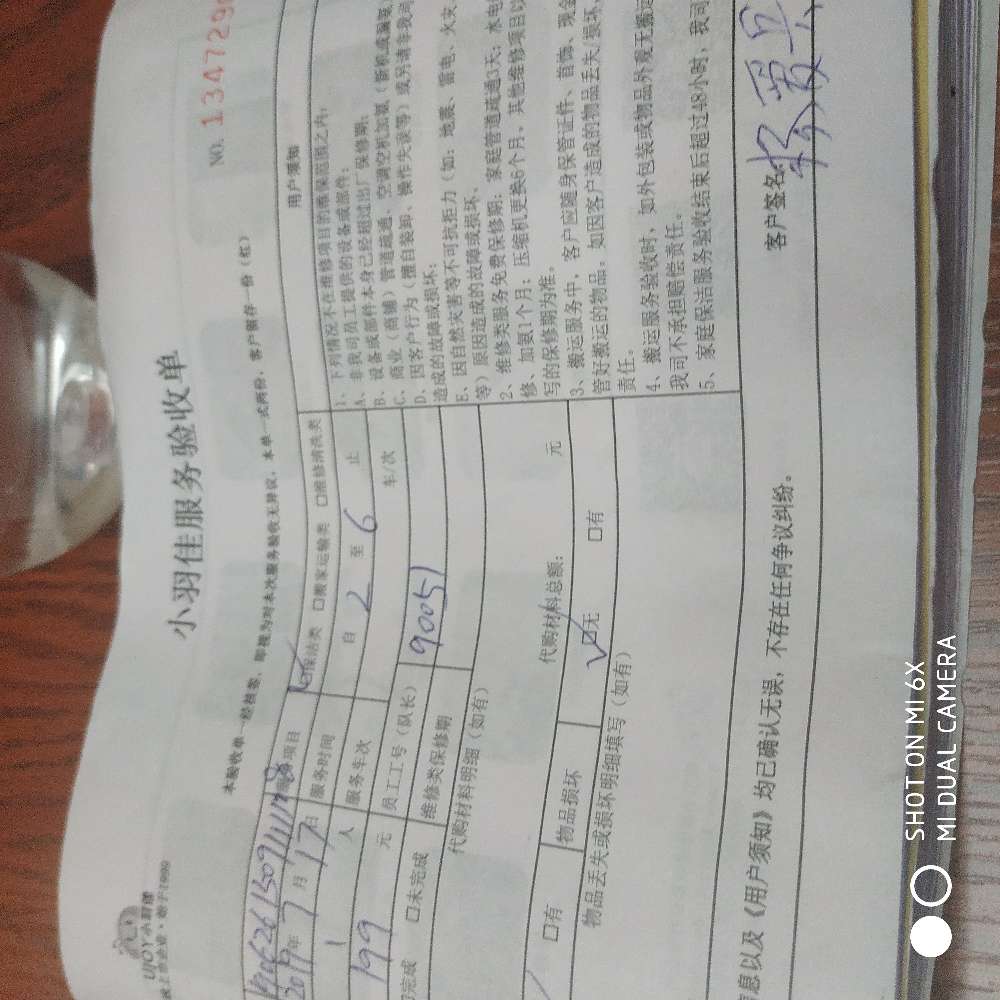 小羽佳服务验收单
NO. 134729
本验收单一经核签,即视为对本次服务验收无异议,本单一式两份,客户留存一份(红)
UJOY小羽佳
始于1999
2019年7月17日
服务项目
保洁类 □搬家运输类 □维修清洗类
1人
服务时间
自 2 至 6 止
199 元
服务车次
车/次
完成 □未完成
员工工号(队长)
90051
维修类保修期
代购材料明细(如有)
代购材料总额: 元
□有
物品损坏
☑无 □有
物品丢失或损坏明细填写(如有)
用户须知
1、下列情况不在维修项目的维保范围之内:
A、非我司员工提供的设备或部件;
B、设备或部件本身已经超过出厂保修期;
C、商业(商铺)管道疏通、空调空机加氟
D、因客户行为(擅自装卸、操作失误等)或另请非我司
造成的故障或损坏;
E、因自然灾害等不可抗拒力(如:地震、雷电、火灾
等)原因造成的故障或损坏。
2、维修类服务免费保修期:家庭管道疏通3天;水电
修、加氨1个月;压缩机更换6个月,其他维修项目以
写的保修期为准。
3、搬运服务中,客户应随身保管证件、首饰、现金
管好搬运的物品。如因客户造成的物品丢失/损坏,
责任。
4、搬运服务验收时,如外包装或物品外观无
我司不承担赔偿责任。
5、家庭保洁服务验收结束后超过48小时,我司
息以及《用户须知》均已确认无误,不存在任何争议纠纷。
客户签名:
SHOT ON MI 6X
MI DUAL CAMERA